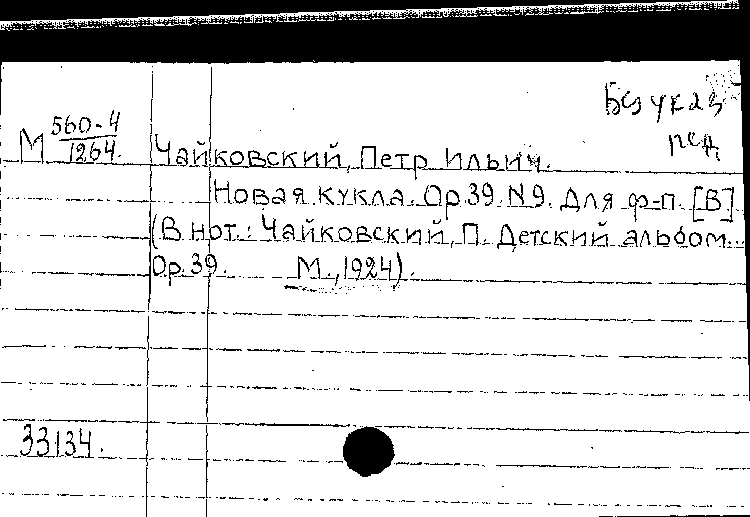 Без указ
ред
М 560-4
1264.
Чайковский, Петр Ильич.
Новая кукла. Ор.39. N9. Для ф-п. [В]
(В нот.: Чайковский, П. Детский альбом...
Ор.39. М., 1924).
33134.